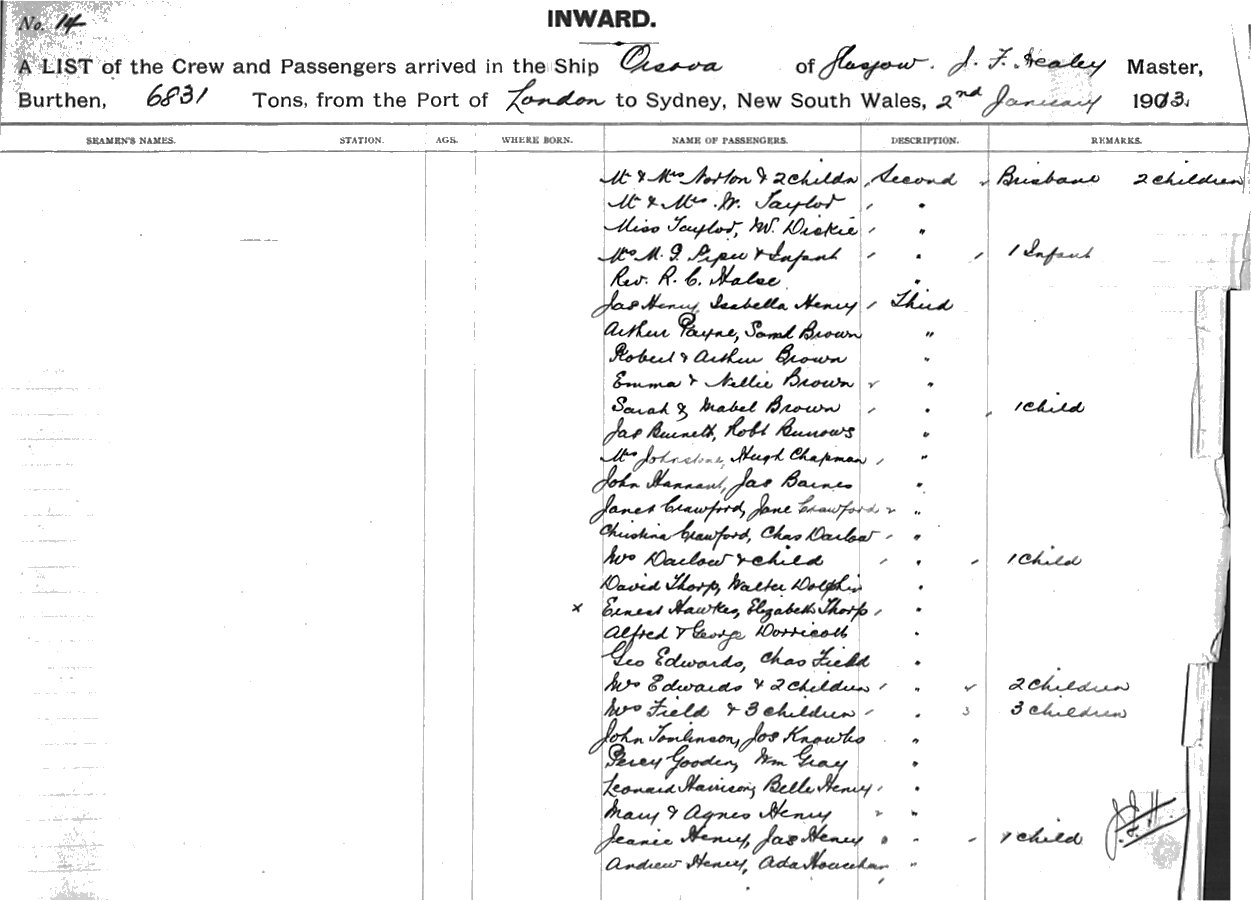 No. 14
INWARD.
A LIST of the Crew and Passengers arrived in the Ship Orsova of Glasgow. J. F. Healey Master,
Burthen, 6831 Tons, from the Port of London to Sydney, New South Wales, 2nd January 1903.
SEAMEN'S NAMES. STATION. AGE. WHERE BORN. NAME OF PASSENGERS. DESCRIPTION. REMARKS.
Mr & Mrs Norton & 2 Childn Second Brisbane 2 children
Mr & Mrs W. Taylor "
Miss Taylor, W. Dickie "
Mrs M. G. Piper & Infant " 1 Infant
Rev. R. C. Halse "
Jas Henry, Isabella Henry Third
Arthur Payne, Saml Brown "
Robert & Arthur Brown "
Emma & Nellie Brown "
Sarah & Mabel Brown " 1 child
Jas Burnett, Robt Burrows "
Mrs Johnstone, Hugh Chapman "
John Hannant, Jas Barnes "
Janet Crawford, Jane Crawford "
Christina Crawford, Chas Darlow "
Mrs Darlow & child " 1 Child
David Thorp, Walter Dolphin "
x Ernest Hawkes, Elizabeth Thorp "
Alfred & George Dorricott "
Geo Edwards, Chas Field "
Mrs Edwards & 2 Children " 2 Children
Mrs Field & 3 children " 3 3 children
John Tomlinson, Jos Knowles "
Percy Gooden, Wm Gray "
Leonard Harrison, Belle Henry "
Mary & Agnes Henry "
Jeanie Henry, Jas Henry " 1 child
J.F.H.
Andrew Henry, Ada "